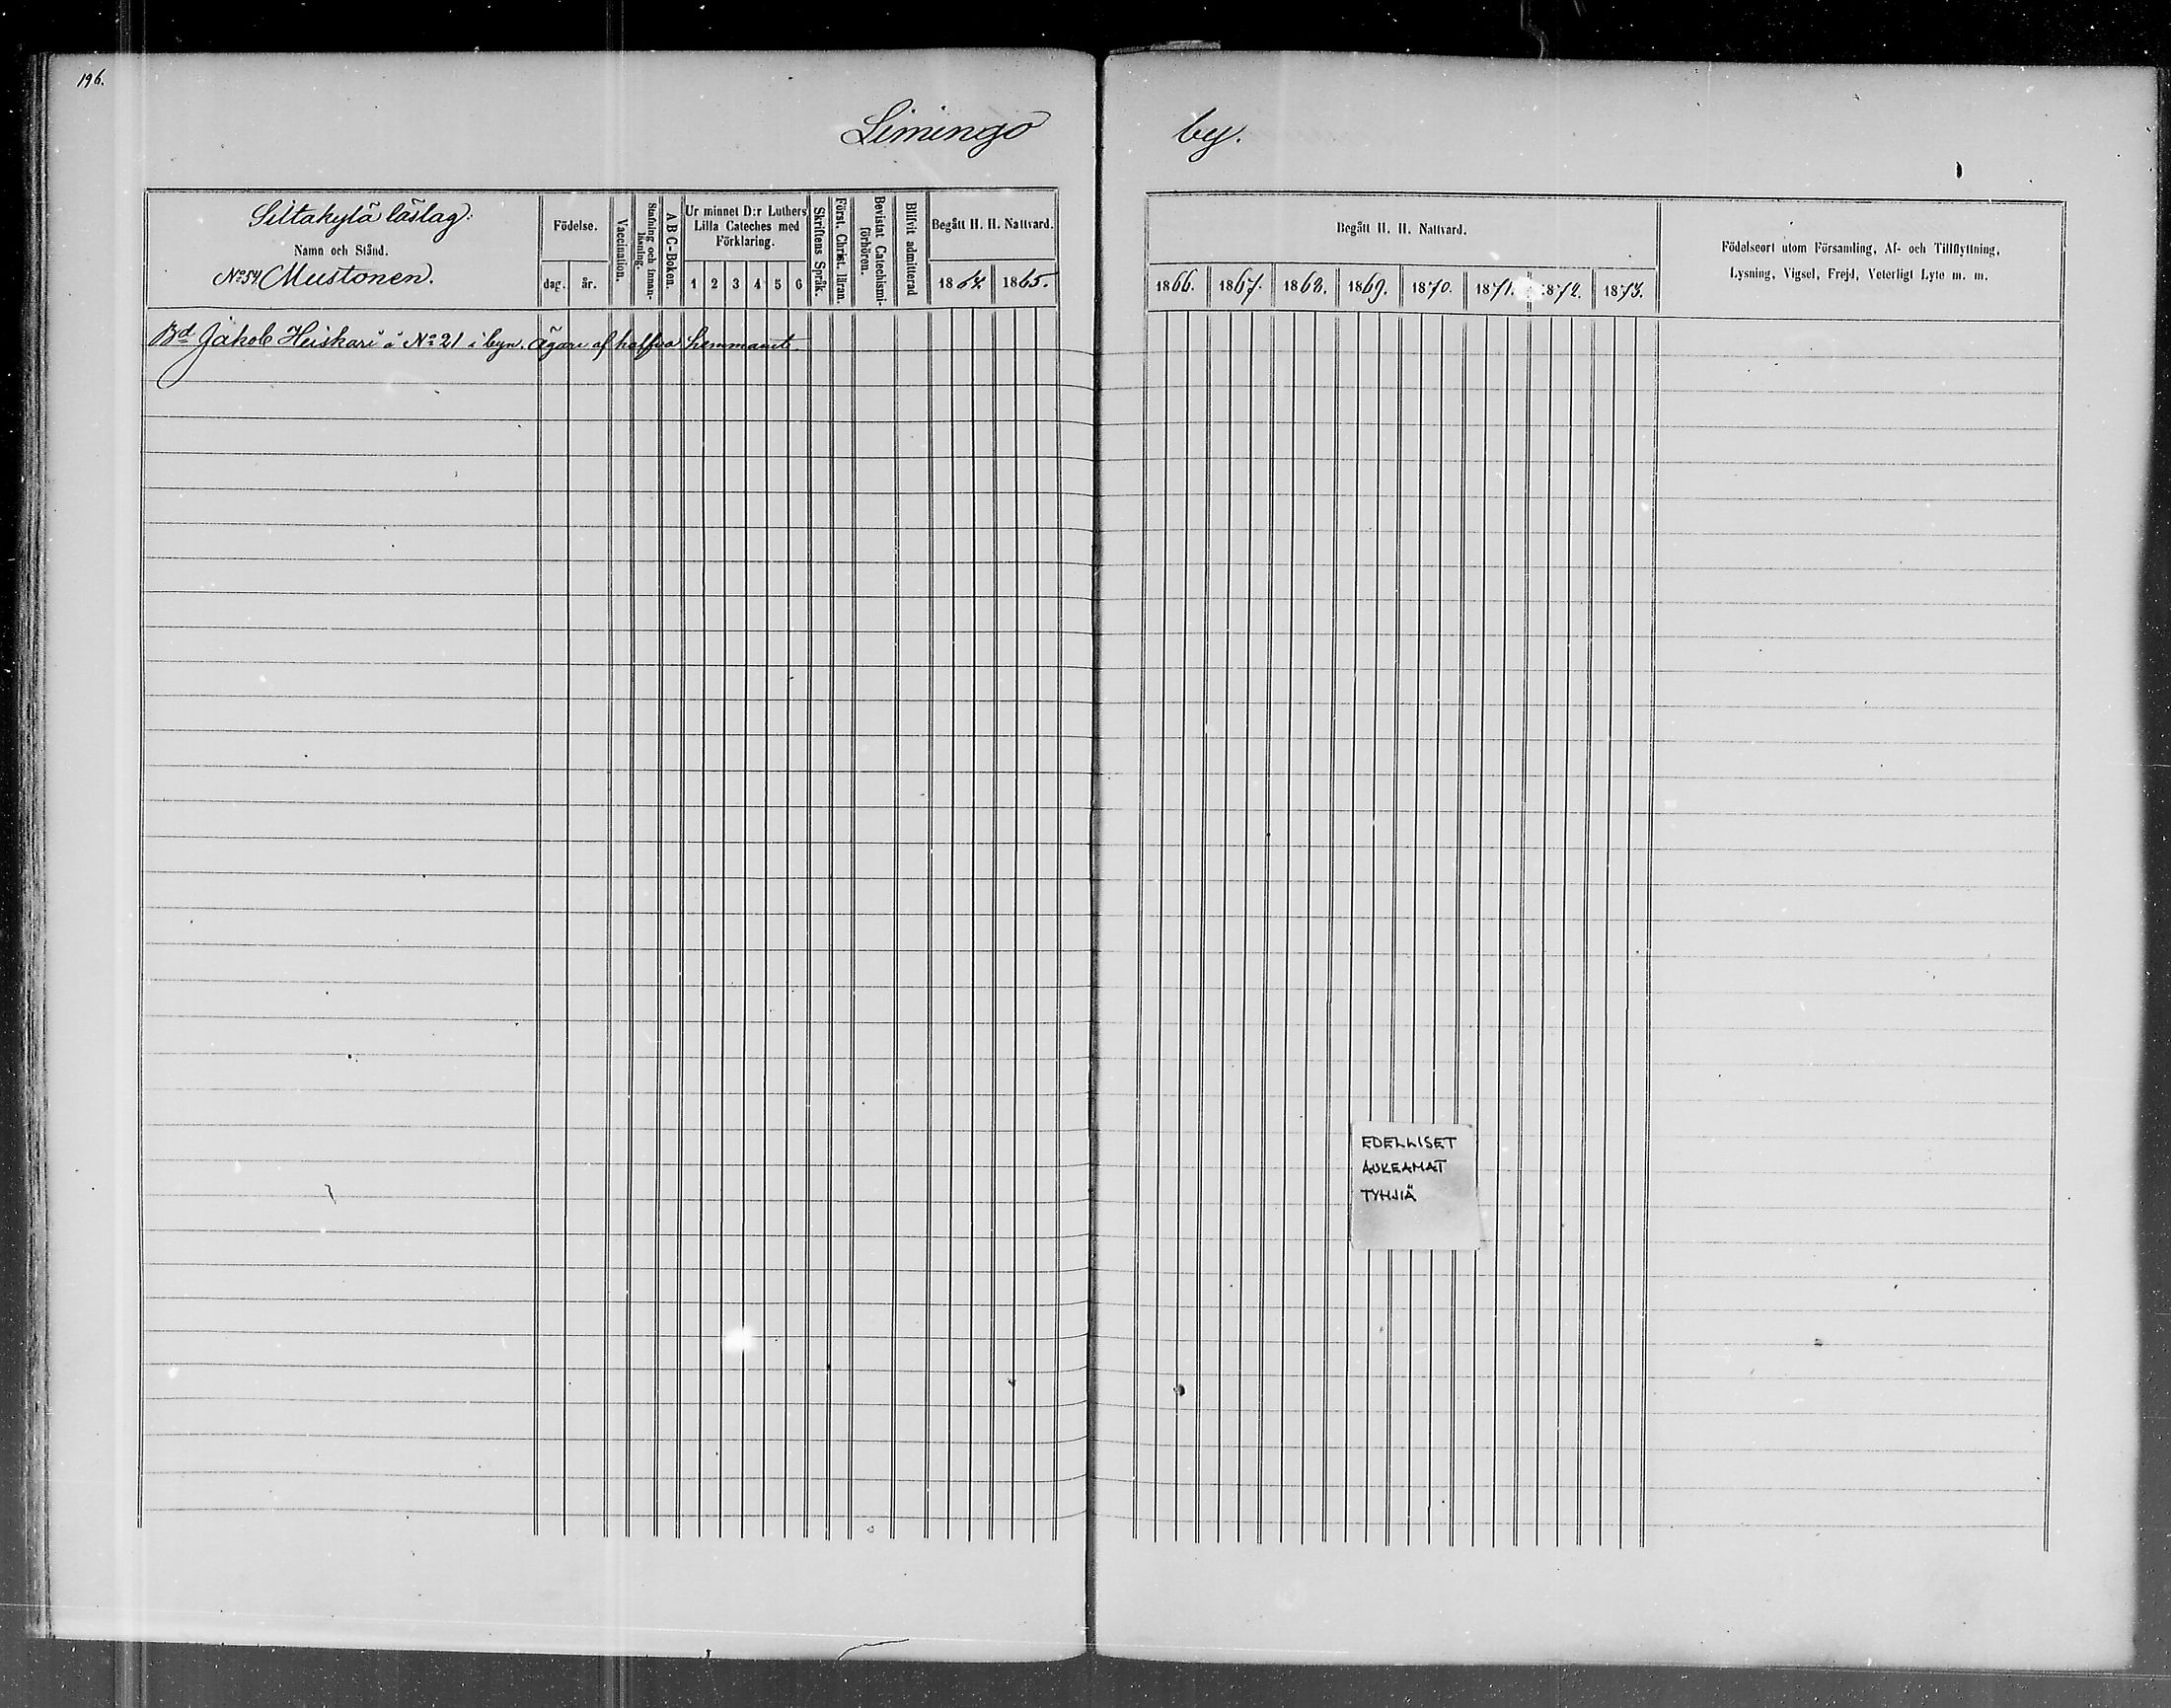 196.
Limingo by.
Siltakylä läslag:
Namn och Stånd.
No 54. Mustonen.
Födelse.
dag. år.
Vaccination.
Stafning och innan-läsning.
A B C-Boken.
Ur minnet D:r Luthers
Lilla Cateches med
Förklaring.
1 2 3 4 5 6
Skriftens Språk.
Först. Christ. läran.
Bevistat Catechismi-förhören.
Blifvit admitterad
Begått H. H. Nattvard.
1864. 1865.
Bd Jakob Heiskari å No 21 i byn. Ägare af halfva hemmanet.
Begått H. H. Nattvard.
1866. 1867. 1868. 1869. 1870. 1871. 1872. 1873.
Födelseort utom Församling, Af- och Tillflyttning,
Lysning, Vigsel, Frejd, Veterligt Lyte m. m.
EDELLISET
AUKEAMAT
TYHJIÄ